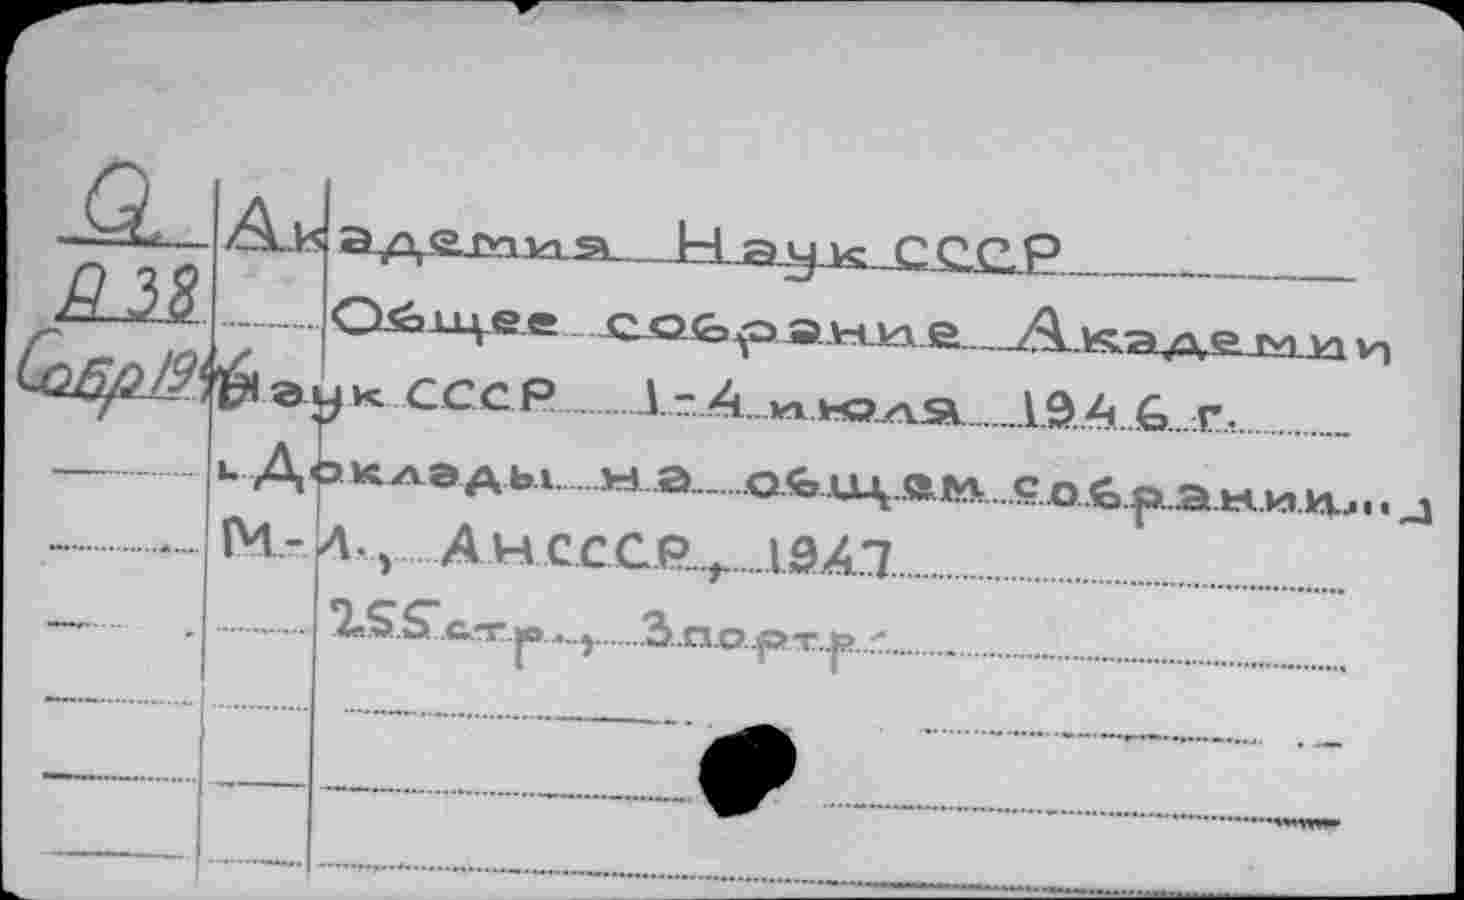 Q
А38
Собр194
Академия Наук СССР
Общее собрание Академии
Наук СССР 1-4 июля 1946 г.
Доклады на общем собрании...
М.-Л., АНСССР, 1947
255 стр., 3 портр.